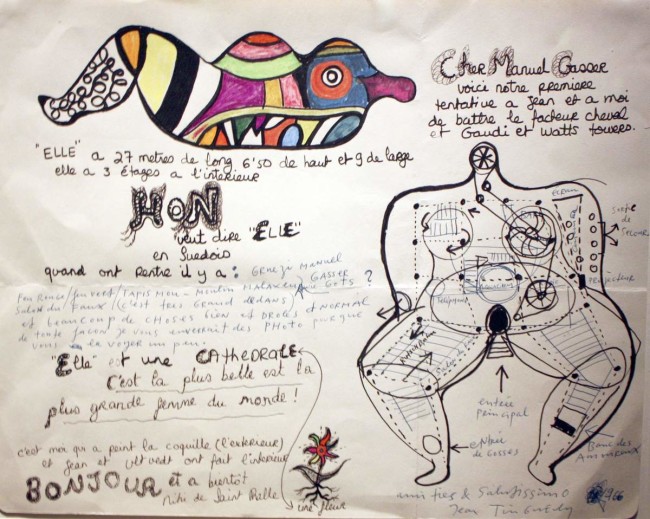 Cher Manuel Gasser
voici notre premiere
tentative a Jean et a moi
de battre le facteur cheval
et Gaudi et Watts towers.
"ELLE" a 27 metres de long 6'50 de haut et 9 de large
elle a 3 étages a l'interieur
HON
veut dire "ELLE"
en Suedois
quand ont rentre il y a : GRUEZI MANUEL
GASSER
feu Rouge/feu vert/TAPIS MOU - Moulin
Salon du Faux/(c'est tres GRAND dedans)
et beaucoup de CHOSES bien et DROLES et NORMAL
de toute facon je vous enverrait des PHOTO puisque
vous le voyer un peu.
"Elle" est une CATHEDRALE
C'est la plus belle est la
plus grande femme du monde !
c'est moi qui a peint la coquille (l'exterieur)
et Jean et Ultvedt ont fait l'interieur
BONJOUR et a bientot
Niki de Saint Phalle
une fleur
ecran
Sortie
de Secours
projecteur
Telephone
entrée
principal
de Gosses
Banc des
Amoureux
amities & Salutissimo
Jean Tinguely
1966